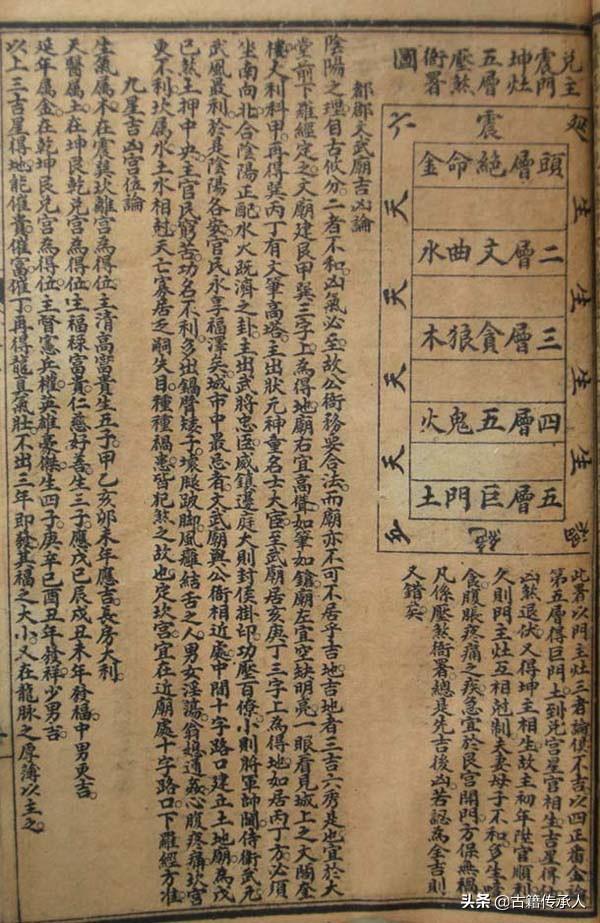 兌主
震門
坤灶
五層
壓煞
衙署
圖
震
頭層絕命金
二層文曲水
三層貪狼木
四層五鬼火
五層巨門土
生
生
生
生
天
天
天
天
此署以門主灶三者論俱不吉以四正番金
第五層得巨門土到兌宮星宮相生吉星得位
凶煞退伏又得坤主相生故主初年陞官順利
久則門主灶互相尅制夫妻母子不和多生
食腹脹疼痛之疾急宜於艮宮開門方保無禍
凡係壓煞衙署總是先吉後凶若認為全吉則
又錯矣
都郡文武廟吉凶論
陰陽之理自古攸分二者不和凶氣必至故公衙務要合法而廟亦不可不居乎吉地吉地者三吉六秀是也宜於大
堂前下羅經定之文廟建艮甲巽三字上為得地廟右宜高聳如筆如鎗廟左宜空缺明亮一眼看見城上之文閣奎
樓大利科甲再得巽丙丁有文筆高塔主出狀元神童名士大宦至武廟居亥庚丁三字上為得地如居丙丁方必須
坐南向北合陰陽正配水火既濟之卦主出武將忠臣威鎮邊庭大則封侯掛印功壓百僚小則將軍帥閫侍衛武元
武風最利於是陰陽各安官民永享福澤矣城市中最忌者文武廟與公衙相近處中間十字路口建立土地廟為戊
已煞土押中央主官民窮苦功名不利多出鍋臂矮子壞腿跛脚風癱結舌之人男女淫蕩翁媳通姦心腹疼痛坎宮
更不利坎屬水土水相尅夭亡寡居乏嗣失目種種禍患皆犯煞之故也定坎宮宜在近廟處十字路口下羅經方准
九星吉凶宮位論
生氣屬木在震巽坎離宮為得位主清高富貴生五子甲乙亥卯未年應吉長房大利
天醫屬土在坤艮乾兌宮為得位主福祿富貴仁慈好善生三子應戊己辰戌丑未年發福中男更吉
延年屬金在乾坤艮兌宮為得位主賢憲兵權英雄豪傑生四子庚辛巳酉丑年發祥少男吉
以上三吉星得地能催貴催富催丁再得龍真氣壯不出三年即發其福之大小又在龍脉之厚薄以主之
头条 @古籍传承人